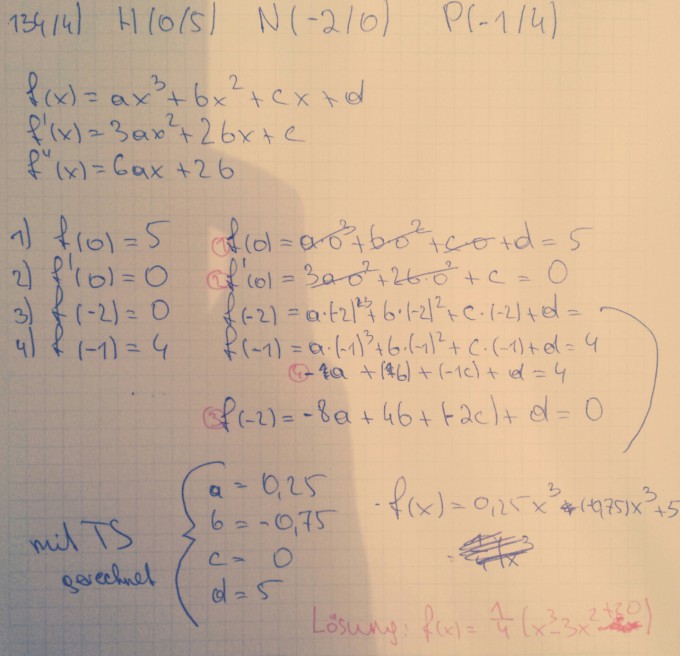 134/4) H(0/5) N(-2/0) P(-1/4)
f(x) = ax³ + bx² + cx + d
f'(x) = 3ax² + 2bx + c
f"(x) = 6ax + 2b
1) f(0) = 5 ① f(0) = a·0³ + b·0² + c·0 + d = 5
2) f'(0) = 0 ② f'(0) = 3a·0² + 2b·0² + c = 0
3) f(-2) = 0 f(-2) = a·(-2)³ + b·(-2)² + c·(-2) + d =
4) f(-1) = 4 f(-1) = a·(-1)³ + b·(-1)² + c·(-1) + d = 4
④ -1a + (1b) + (-1c) + d = 4
③ f(-2) = -8a + 4b + (-2c) + d = 0
mit TS gerechnet
a = 0,25
b = -0,75
c = 0
d = 5
f(x) = 0,25x³ + (-0,75)x³ + 5
Lösung: f(x) = 1/4 (x³ - 3x² + 20)